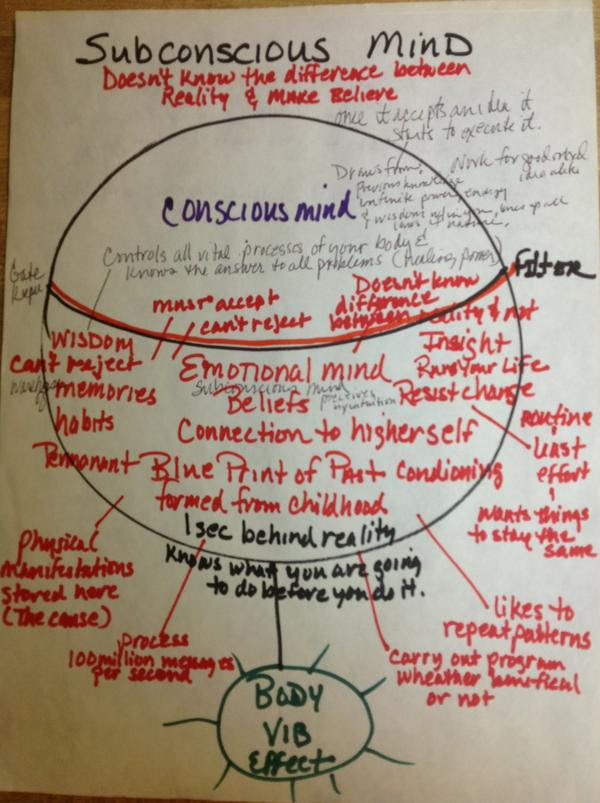 Subconscious Mind
Doesn't Know the difference between
Reality & Make Believe
once it accepts an idea it
starts to execute it.
Draws from,
Previous knowledge
infinite power, energy
& wisdom
laws of nature,
Work for good or bad
idea alike
Conscious mind
Controls all vital processes of your body &
Knows the answer to all problems (healing power)
Gate
Keeper
Filter
must accept
can't reject
Doesn't know
difference
between reality & not
Wisdom
can't reject
memories
habits
Emotional mind
Subconscious mind
Beliefs
perceives
by intuition
Connection to higherself
Insight
Runs Your Life
Resist change
Permanant Blue Print of Past Condioning
formed from childhood
1 sec behind reality
Knows what you are going
to do before you do it.
routine
least
effort
wants things
to stay the
same
Physical
manifestations
stored here
(The cause)
Process
100 million messages
per second
likes to
repeat patterns
carry out program
wheather benifical
or not
Body
Vib
Effect